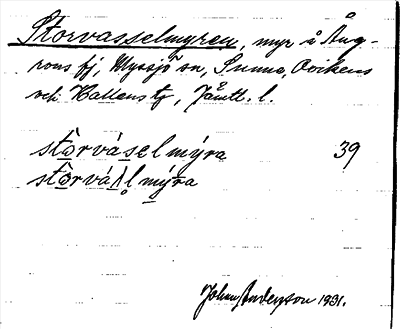 Storvasselmyren, myr å Ång-
rons fj, Myssjö sn, Sunne, Ovikens
och Hallens tg, Jämtl. l.
stòrvásel mýra 39
stòrvásl mýra
John Anderson 1931.